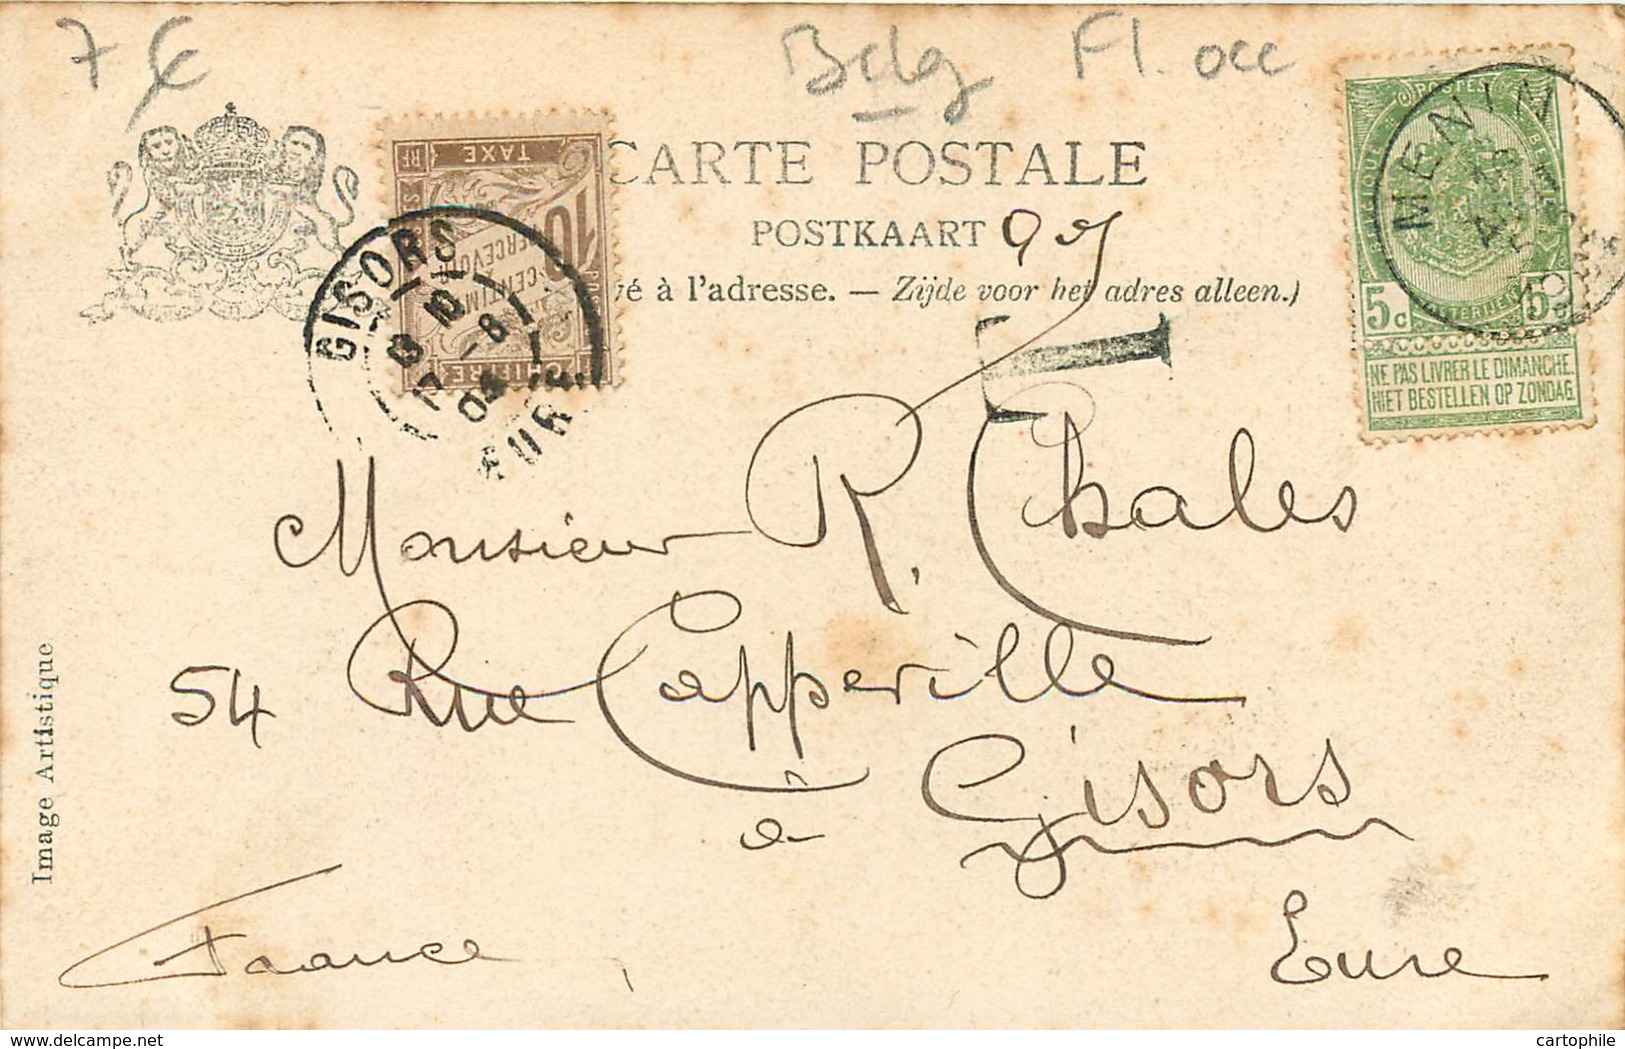 7 €
Belg Fl. occ
CARTE POSTALE
POSTKAART
vé à l'adresse. — Zijde voor het adres alleen.)
TAXE
RF
10
CENTIM
PERCEVOIR
CHIFFRE
GISORS
10
-8
EURE
T
MENIN
POSTES
5c
5c
NE PAS LIVRER LE DIMANCHE.
NIET BESTELLEN OP ZONDAG.
Monsieur R. Chales
54 Rue Capperille
à Gisors
France Eure
Image Artistique
delcampe.net
cartophile